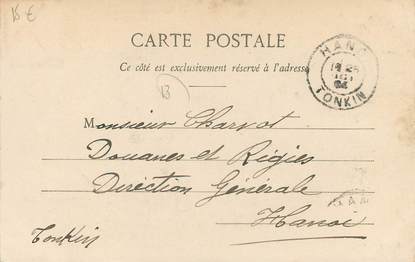 15 €
CARTE POSTALE
Ce côté est exclusivement réservé à l'adresse
13
TONKIN
Monsieur Charvot
Douanes et Régies
Direction Générale
Hanoi
Tonkin